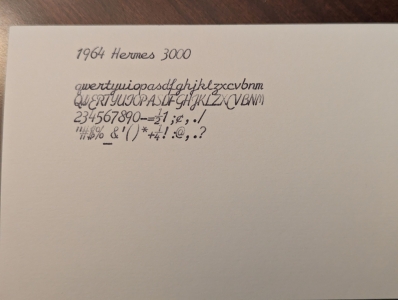 1964 Hermes 3000
qwertyuiopasdfghjklzxcvbnm
QWERTYUIOPASDFGHJKLZXCVBNM
234567890-=½1;¢,./
"#$%_&'()*+¼!:@,.?